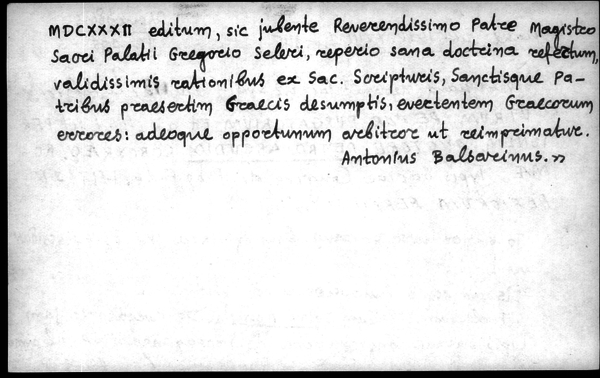 MDCXXXII editum, sic jubente Reverendissimo Patre Magistro
Sacri Palatii Gregorio Seleri, reperio sana doctrina refertum,
validissimis rationibus ex Sac. Scripturis, Sanctisque Pa-
tribus praesertim Graecis desumptis, evertentem Graecorum
errores: adeoque opportunum arbitror ut reimprimatur.
Antonius Balsarinus.»